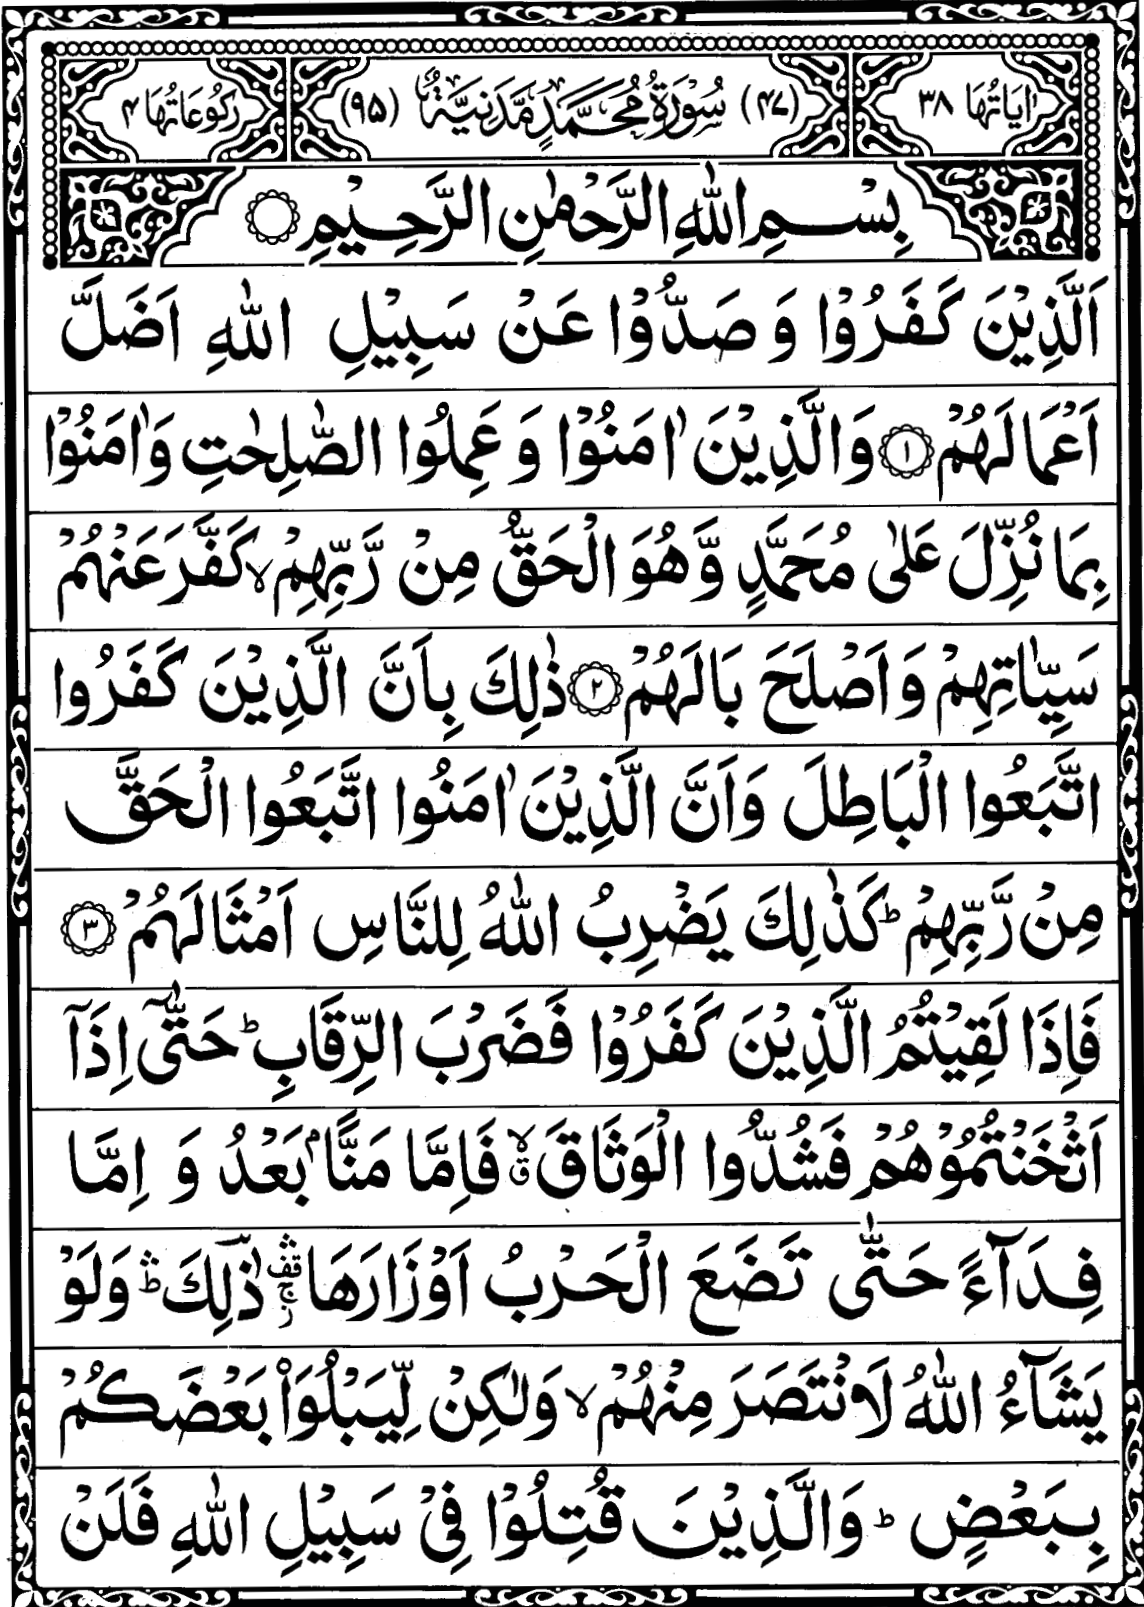 اٰيَاتُهَا ٣٨ (٤٧) سُوْرَةُ مُحَمَّدٍ مَّدَنِيَّةٌ (٩٥) رُكُوْعَاتُهَا ٤
بِسْمِ اللّٰهِ الرَّحْمٰنِ الرَّحِيْمِ
اَلَّذِيْنَ كَفَرُوْا وَ صَدُّوْا عَنْ سَبِيْلِ اللّٰهِ اَضَلَّ
اَعْمَالَهُمْ ١ وَالَّذِيْنَ اٰمَنُوْا وَ عَمِلُوا الصّٰلِحٰتِ وَاٰمَنُوْا
بِمَا نُزِّلَ عَلٰى مُحَمَّدٍ وَّهُوَ الْحَقُّ مِنْ رَّبِّهِمْ ۙ كَفَّرَ عَنْهُمْ
سَيِّاٰتِهِمْ وَاَصْلَحَ بَالَهُمْ ٢ ذٰلِكَ بِاَنَّ الَّذِيْنَ كَفَرُوا
اتَّبَعُوا الْبَاطِلَ وَاَنَّ الَّذِيْنَ اٰمَنُوا اتَّبَعُوا الْحَقَّ
مِنْ رَّبِّهِمْ ؕ كَذٰلِكَ يَضْرِبُ اللّٰهُ لِلنَّاسِ اَمْثَالَهُمْ ٣
فَاِذَا لَقِيْتُمُ الَّذِيْنَ كَفَرُوْا فَضَرْبَ الرِّقَابِ ؕ حَتّٰۤى اِذَاۤ
اَثْخَنْتُمُوْهُمْ فَشُدُّوا الْوَثَاقَ ۙ ق فَاِمَّا مَنًّۢا بَعْدُ وَ اِمَّا
فِدَآءً حَتّٰى تَضَعَ الْحَرْبُ اَوْزَارَهَا ۛۚ ذٰؔلِكَ ۛؕ وَلَوْ
يَشَآءُ اللّٰهُ لَانْتَصَرَ مِنْهُمْ ۙ وَلٰكِنْ لِّيَبْلُوَا۟ بَعْضَكُمْ
بِبَعْضٍ ؕ وَالَّذِيْنَ قُتِلُوْا فِيْ سَبِيْلِ اللّٰهِ فَلَنْ